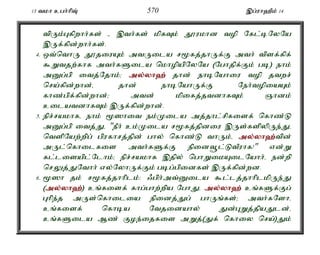 13 வமா உபர்ரிஃ 570 இப்ராஹீம் 14
விரும்புகிறார்கள் - இவர்கள் மிகவும் தூரமான வழி கேட்டிலேயே
இருக்கின்றார்கள்.
4. ஒவ்வொரு தூதரையும் அவருடைய சமூகத்தாருக்கு அவர் விளக்கிக்
கூறுவதற்காக அவர்களுடைய மொழியிலேயே (போதிக்கும் படி) நாம்
அனுப்பி வைத்தோம்; அல்லாஹ் தான் நாடியோரை வழி தவறச்
செய்கின்றான், தான் நாடியோருக்கு நேர்வழியையும்
காண்பிக்கின்றான்; அவன் மிகைத்தவனாகவும் ஞானம்
உடையவனாகவும் இருக்கின்றான்.
5. நிச்சயமாக, நாம் மூஸாவை நம்முடைய அத்தாட்சிகளைக் கொண்டு
அனுப்பி வைத்து, "நீர் உம்முடைய சமூகத்தினரை இருள்களிலிருந்து
வெளியேற்றிப் பிரகாசத்தின் பால் கொண்டு வாரும், அல்லாஹ்வின்
அருட்கொடைகளை அவர்களுக்கு நினைவூட்டுவீராக!" என்று
கட்டளையிட்டோம்; நிச்சயமாக இதில் பொறுமையுடையோர், நன்றி
செலுத்துவோர் எல்லோருக்கும் படிப்பினைகள் இருக்கின்றன.
6. மூஸா தம் சமூகத்தாரிடம்: ஃபிர்அவ்னுடைய கூட்டத்தாரிடமிருந்து
(அல்லாஹ்) உங்களைக் காப்பாற்றிய போது, அல்லாஹ் உங்களுக்குப்
புரிந்த அருள்கொடையை நினைத்துப் பாருங்கள்; அவர்களோ,
உங்களைக் கொடிய வேதனையால் துன்புறுத்தியதுடன்,
உங்களுடைய ஆண் குழந்தைகளை அறுத்(துக் கொலை செய்)தும்